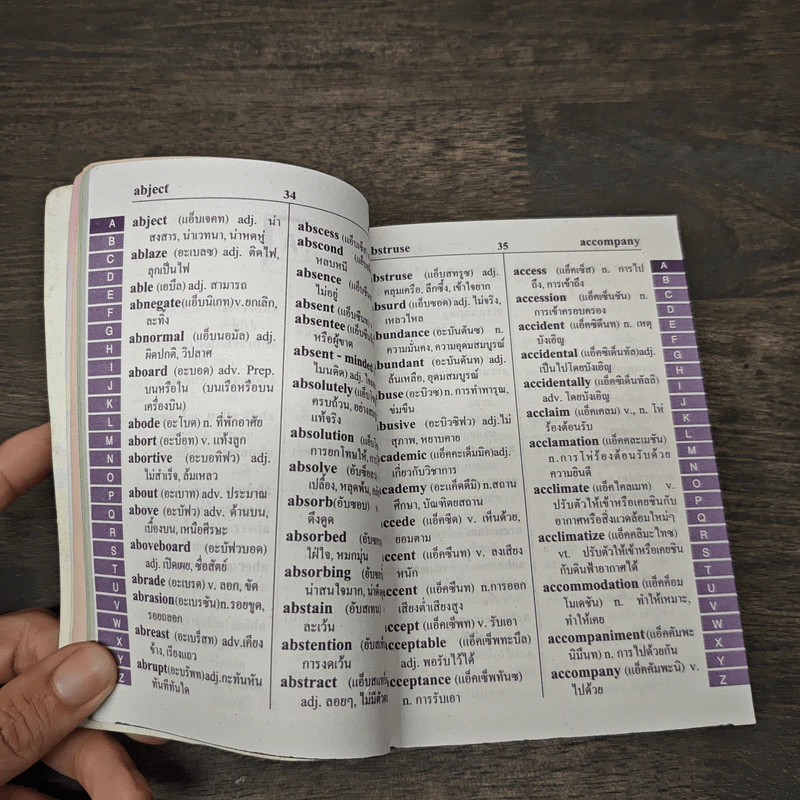 abject
34
A
B
C
D
E
F
G
H
I
J
K
L
M
N
O
P
Q
R
S
T
U
V
W
X
Y
Z
abject (แอ็บเจคท) adj. น่า
สงสาร, น่าเวทนา, น่าหดหู่
ablaze (อะเบลซ) adj. ติดไฟ,
ลุกเป็นไฟ
able (เอบึล) adj. สามารถ
abnegate(แอ็บนิเกท)v.ยกเลิก,
ละทิ้ง
abnormal (แอ็บนอมัล) adj.
ผิดปกติ, วิปลาศ
aboard (อะบอด) adv. Prep.
บนหรือใน (บนเรือหรือบน
เครื่องบิน)
abode (อะโบด) n. ที่พักอาศัย
abort (อะบ็อท) v. แท้งลูก
abortive (อะบอทิฟว) adj.
ไม่สำเร็จ, ล้มเหลว
about (อะเบาท) adv. ประมาณ
above (อะบัฟว) adv. ด้านบน,
เบื้องบน, เหนือศีรษะ
aboveboard (อะบัฟวบอด)
adj. เปิดเผย, ซื่อสัตย์
abrade (อะเบรด) v. ลอก, ขัด
abrasion(อะเบรชัน)n.รอยขูด,
รอยถลอก
abreast (อะเบร็สท) adv.เคียง
ข้าง, เรียงแถว
abrupt(อะบรัพท)adj.กะทันหัน
ทันทีทันใด
abscess (แอ็บ
abscond (แอ็บ
หลบหนี
absence (แอ็บ
ไม่อยู่
absent (แอ็บ
absentee (แอ็บ
หรือผู้ขาด
absent - minded
ไมนดิด) adj.
absolutely (แอ็บ
ครบถ้วน,
แท้จริง
absolution (แอ็บ
การยกโทษให้,
absolve (อับ
เปลื้อง, หลุดพ้น,
absorb(อับซอบ)
ดึงดูด
absorbed (อับ
ใฝ่ใจ, หมกมุ่น
absorbing (อับ
น่าสนใจมาก,
abstain (อับสเทน
ละเว้น
abstention (อับ
การงดเว้น
abstract (แอ็บ
adj. ลอยๆ,
bstruse
35
accompany
bstruse (แอ็บสทรูซ) adj.
คลุมเครือ, ลึกซึ้ง, เข้าใจยาก
bsurd (แอ็บซอด) adj. ไม่จริง,
เหลวไหล
bundance (อะบันดันซ) n.
ความมั่นคง, ความอุดมสมบูรณ์
bundant (อะบันดันท) adj.
ล้นเหลือ, อุดมสมบูรณ์
buse (อะบิวซ) n. การทำทารุณ,
ข่มขืน
busive (อะบิวซิฟว) adj.ไม่
สุภาพ, หยาบคาย
cademic (แอ็คคะเด็มมิค)adj.
เกี่ยวกับวิชาการ
cademy (อะแค็ดดีมิ) n.สถาน
ศึกษา, บัณฑิตยสถาน
ccede (แอ็คซีด) v. เห็นด้วย,
ยอมตาม
ccent (แอ็คซึนท) v. ลงเสียง
หนัก
ccent (แอ็คซึนท) n.การออก
เสียงต่ำเสียงสูง
ccept (แอ็คเซ็พท) v. รับเอา
cceptable (แอ็คเซ็พทะบึล)
adj. พอรับไว้ได้
cceptance (แอ็คเซ็พทันซ)
n. การรับเอา
access (แอ็คเซ็ส) n. การไป
ถึง, การเข้าถึง
accession (แอ็คเซ็นชัน) n.
การเข้าครอบครอง
accident (แอ็คซิดึนท) n. เหตุ
บังเอิญ
accidental (แอ็คซิเด็นทัล)adj.
เป็นไปโดยบังเอิญ
accidentally (แอ็คซิเด็นทัลลิ)
adv. โดยบังเอิญ
acclaim (แอ็คเคลม) v., n. โห่
ร้องต้อนรับ
acclamation (แอ็คคละเมชัน)
n.การโห่ร้องต้อนรับด้วย
ความยินดี
acclimate (แอ็คไคลเมท) v.
ปรับตัวให้เข้าหรือเคยชินกับ
อากาศหรือสิ่งแวดล้อมใหม่ๆ
acclimatize (แอ็คคลิมะไทซ)
vt. ปรับตัวให้เข้าหรือเคยชิน
กับดินฟ้าอากาศได้
accommodation (แอ็คค็อม
โมเดชัน) n. ทำให้เหมาะ,
ทำให้เคย
accompaniment(แอ็คคัมพะ
นิมึนท) n. การไปด้วยกัน
accompany (แอ็คคัมพะนิ) v.
ไปด้วย
A
B
C
D
E
F
G
H
I
J
K
L
M
N
O
P
Q
R
S
T
U
V
W
X
Y
Z